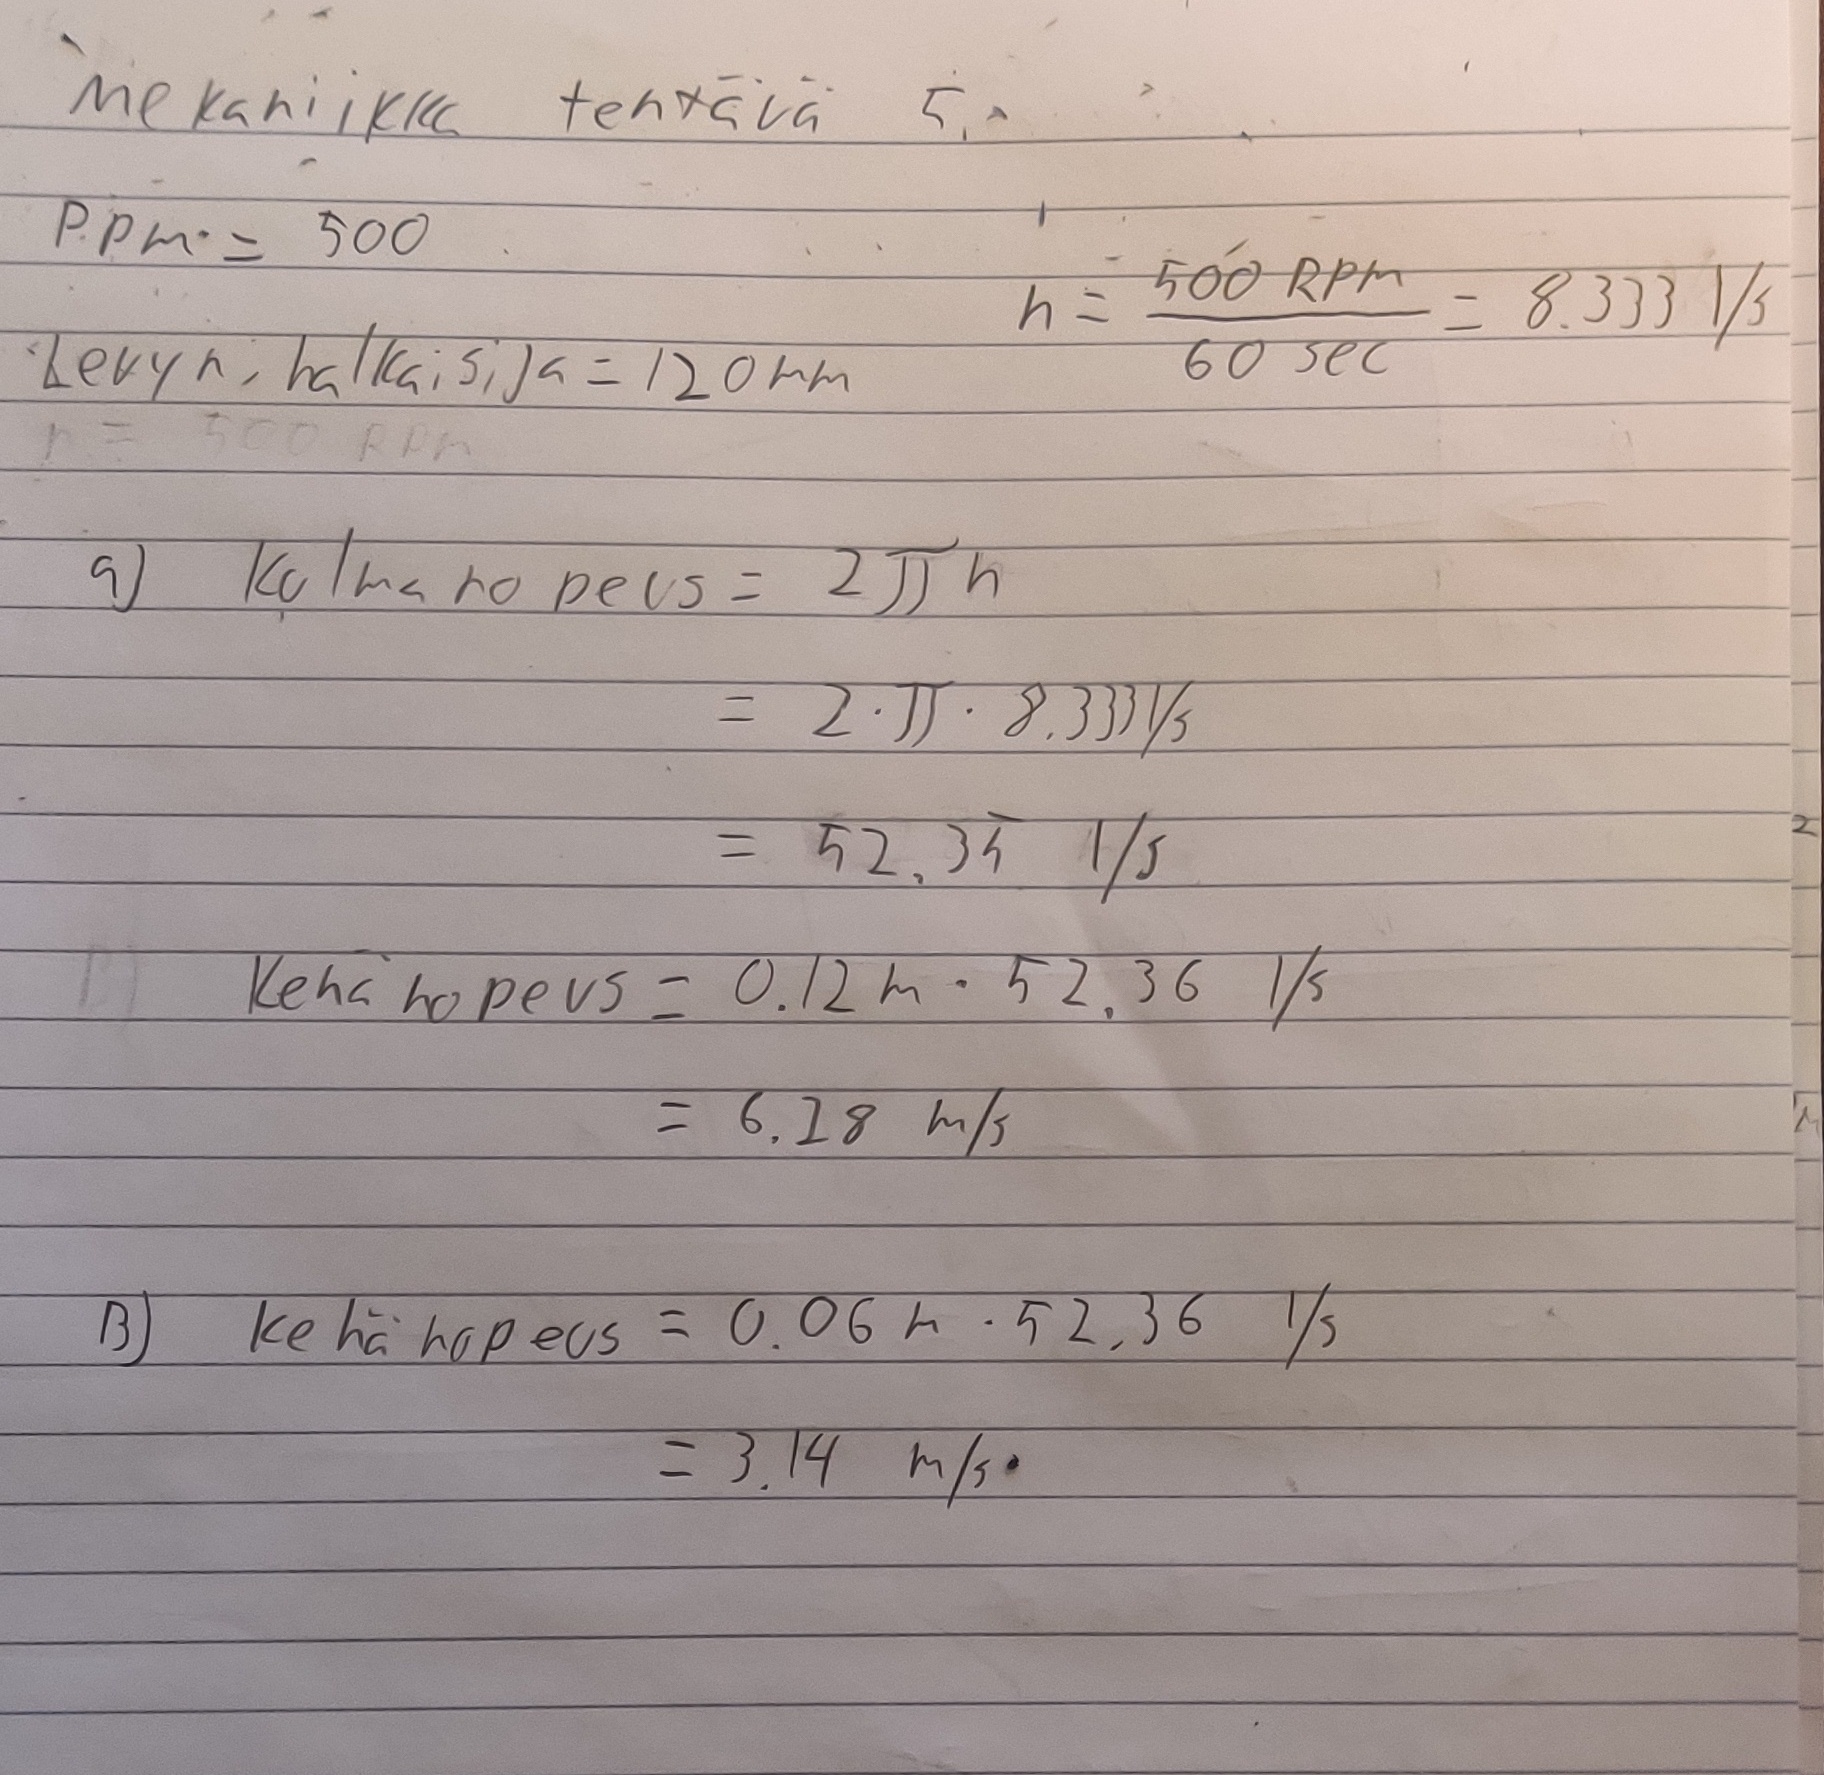 Mekaniikka tehtävä 5.
P.pm. = 500
n = 500 RPM / 60 sec = 8.333 1/s
Levyn halkaisija = 120mm
n = 500 RPM
a) Kulmanopeus = 2πn
= 2·π·8.333 1/s
= 52.35 1/s
B) Kehänopeus = 0.12m · 52.36 1/s
= 6.28 m/s
B) kehänopeus = 0.06m · 52.36 1/s
= 3.14 m/s.